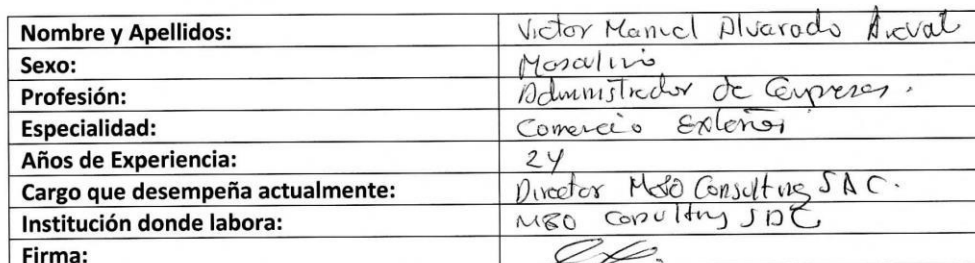 Nombre y Apellidos: Victor Manuel Alvarado
Sexo: Masculino
Profesión: Administrador de Empresas.
Especialidad: Comercio Exterior
Años de Experiencia: 24
Cargo que desempeña actualmente: Director Consulting SAC.
Institución donde labora: Consulting SAC
Firma: